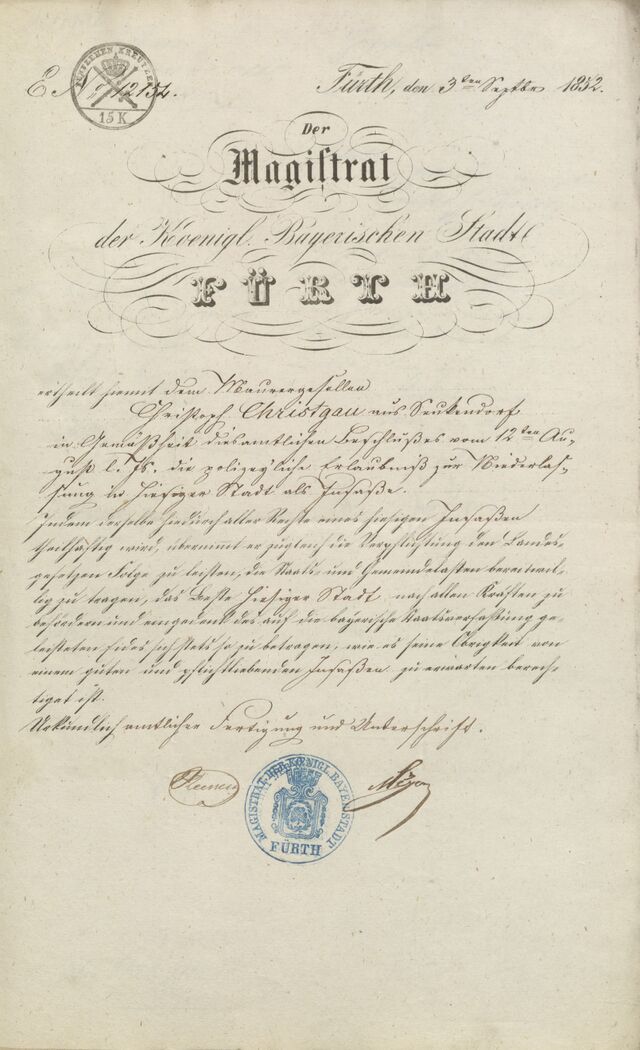 FÜNFZEHEN KREUTZER
15 K
E. No. 12154.
Fürth, den 3ten Septbr 1852.
Der
Magiſtrat
der Koenigl. Bayerischen Stadt
FÜRTH
ertheilt hiemit dem Maurergesellen
Christoph Christgau aus Seukendorf
in Gemäßheit diesamtlichen Beschlußes vom 12ten Au-
gust l. Js. die polizeyliche Erlaubniß zur Niederlas-
sung in hiesiger Stadt als Insaße.
Indem derselbe hiedurch aller Rechte eines hiesigen Insaßen
theilhaftig wird, übernimmt er zugleich die Verpflichtung den Landes-
gesetzen Folge zu leisten, die Staats- und Gemeindelasten bereitwil-
lig zu tragen, das Beste hiesiger Stadt nach allen Kräften zu
befördern und eingedenk des auf die bayerische Staatsverfassung ge-
leisteten Eides sich stets so zu betragen, wie es seine Obrigkeit von
einem guten und pflichtliebenden Insaßen zu erwarten berech-
tiget ist.
Urkundlich amtlicher Fertigung und Unterschrift.
MAGISTRAT DER KŒNIGL. BAYER. STADT
FÜRTH